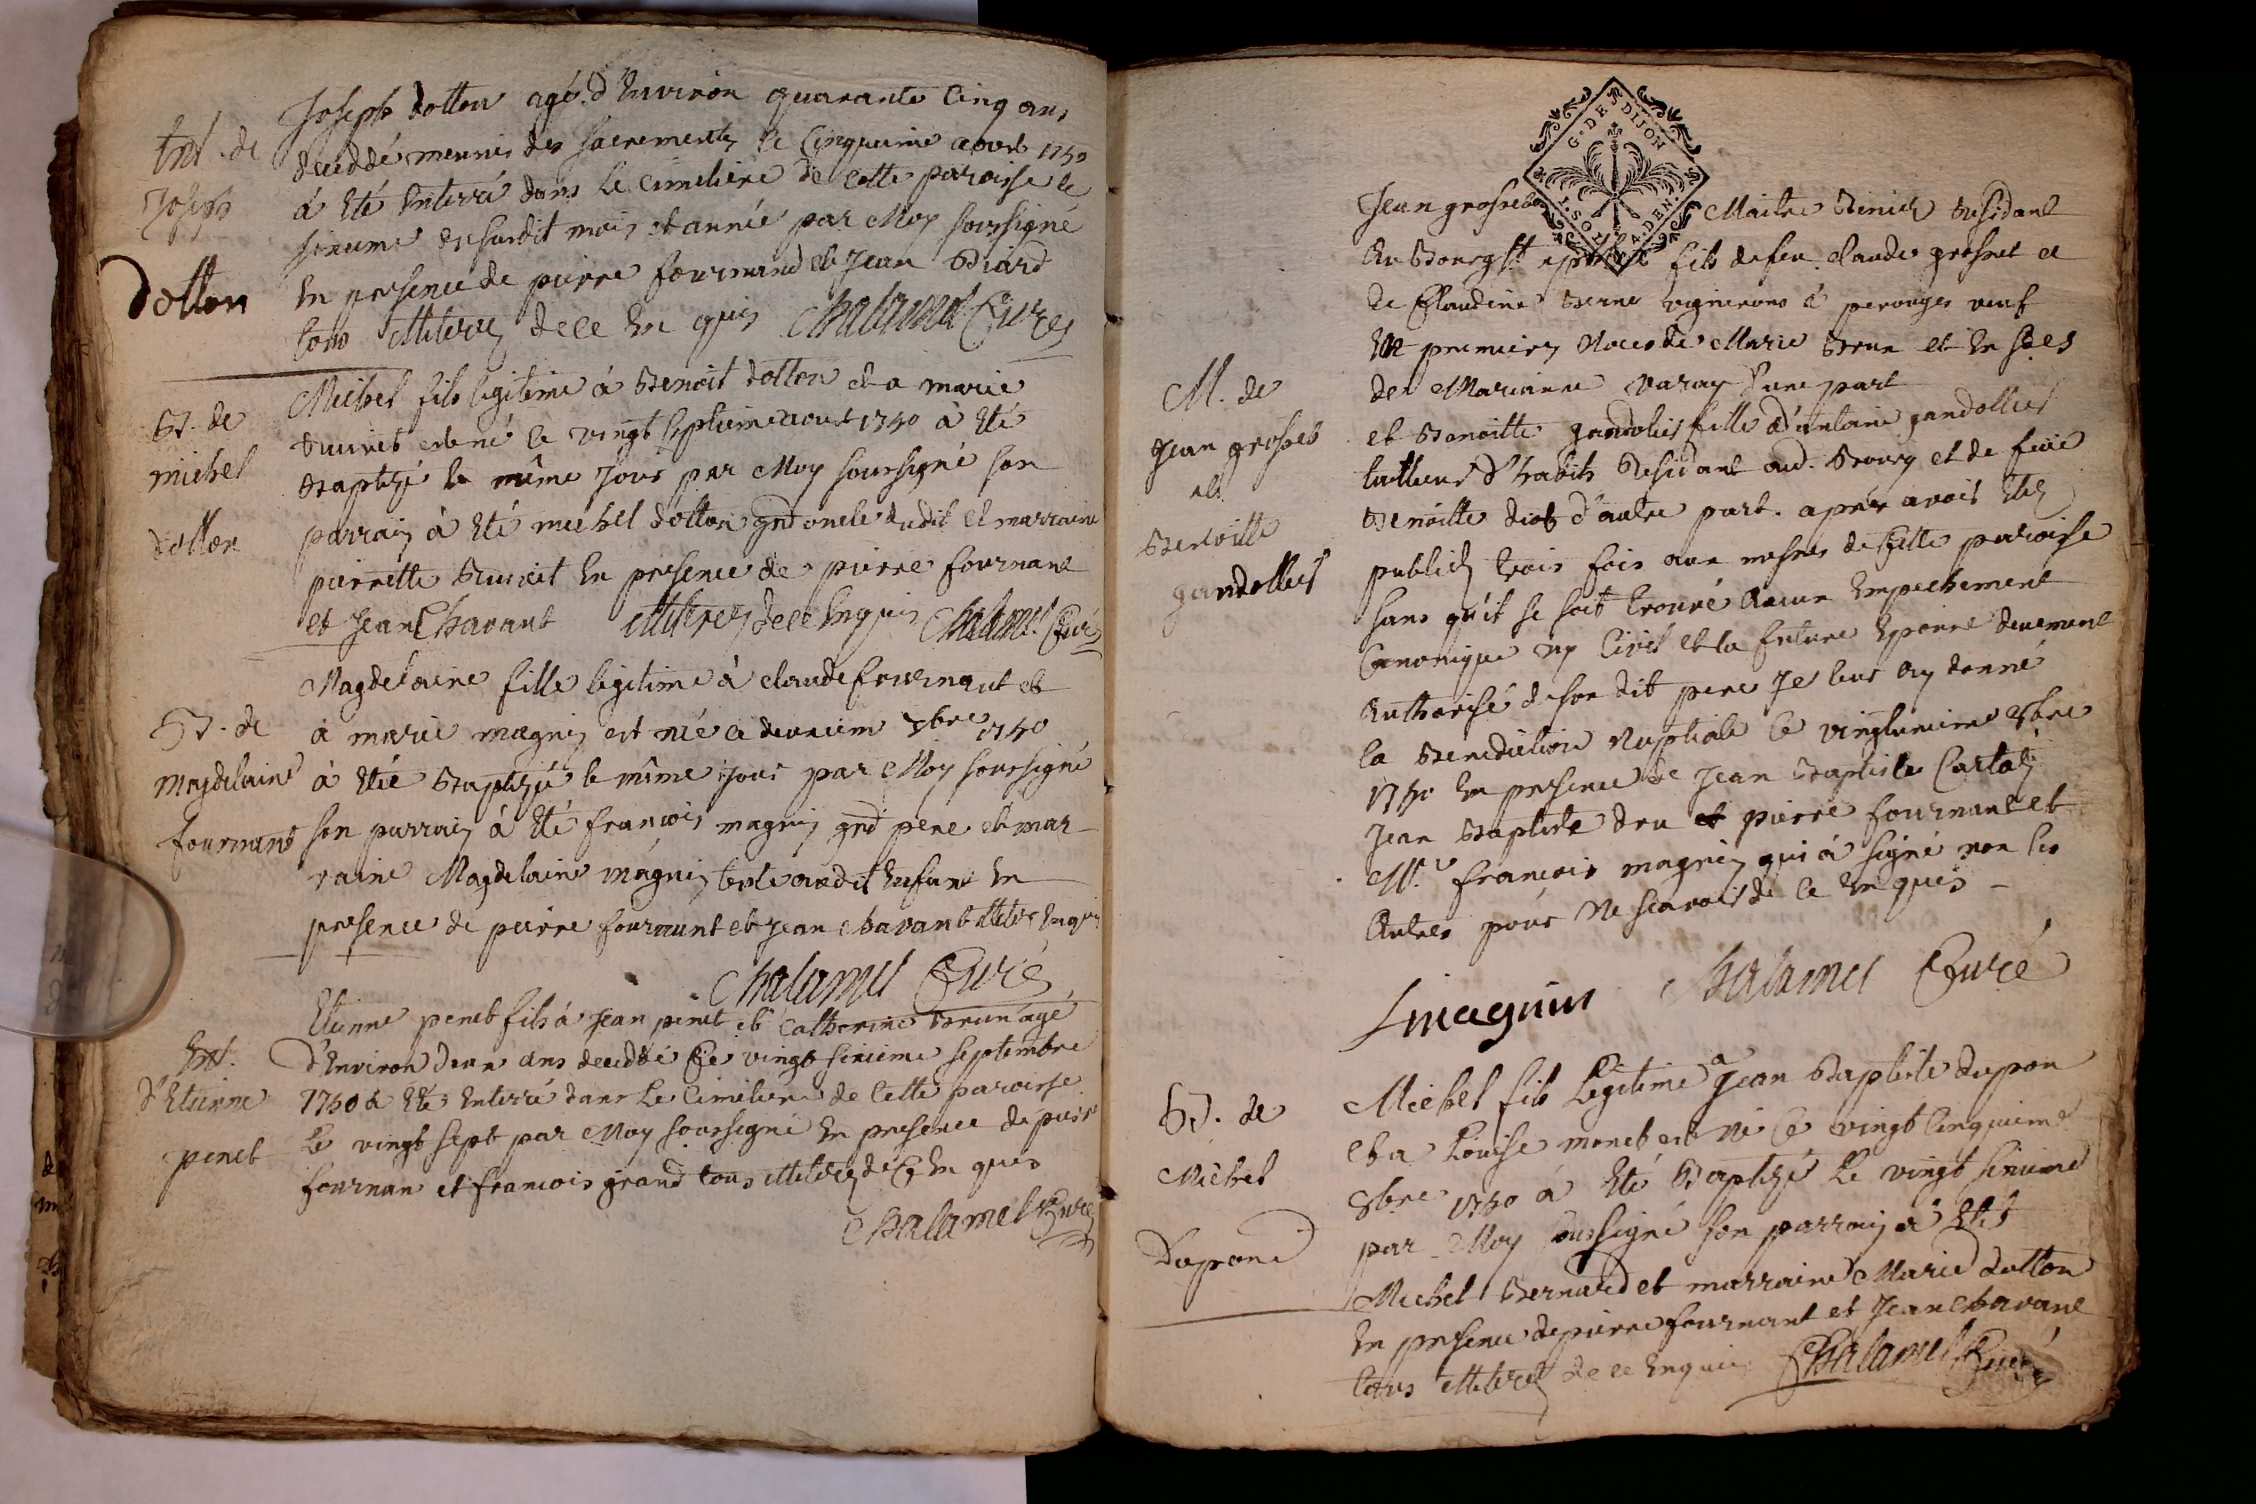 Ent. de
Joseph
dotton
Joseph dotton agé d'Environ quarante Cinq ans
deceddé meunis des sacrements le Cinquieme aout 1750
à Eté Enterré dans Le Cimetiere de Cette paroisse le
sixieme susdit mois et année par Moy soussigné
En presence de pierre fournand et Jean Biard
tous illiterez de ce En quis Chalamel Curé
B. de
michel
dotton
Michel fils legitime à Benoit dotton et a marie
est né le vingt septieme aout 1750 à Eté
Baptizé le même Jour par Moy soussigné son
parrain à Eté michel dotton grd oncle dudit et marraine
pierrette en presence de pierre fournant
et Jean Chavant illiterez de ce Enquis Chalamel Curé
B. de
Magdelaine
fournant
Magdelaine fille legitime à claude fournant et
à marie magnin est née le deuxiem 7bre 1750
à Etée Baptizée le même jour par Moy soussigné
son parrain à Eté francois magnin grd pere et mar-
raine Magdelaine magnin tante audit Enfant En
presence de pierre fournant et Jean chavant illiter Enquis
Chalamel Curé
Ent.
d'Etienne
penet
Etienne penet fils à Jean penet et Catherine Brun agé
d'Environ deux ans deceddé Le vingt sixieme septembre
1750 à Eté Enterré dans Le Cimetiere de Cette paroisse
Le vingt sept par Moy soussigné En presence de pierre
fournan et francois grand tous illiterez de Ce En quis
Chalamel Curé
G. DE DIJON
4. DEN.
M. de
Jean grosset
et
Benoitte
gandollet
Jean grosset Maitre Resident
Au Bourg St fils de feu claude grosset et
de Claudine Berne vignerons à perouges veuf
En premieres Noces de Marie Brun et En sdes
de Marianne varay d'une part
et Benoitte gandollet fille d'antoine gandollet
tailleur d'habits Residant aud. Bourg et de feüe
Benoitte diot d'autre part. apres avoir Eté
publiez trois fois aux messes de Cette paroisse
sans qu'il se soit trouvé Aucun Empechement
Canonique ny Civil et la future Epouse deuement
Authorisé de son dit pere Je leur ay donné
la Benediction Nuptiale Le vingtunieme 8bre
1750 En presence de Jean Baptiste
Jean Baptiste dru et pierre fournant et
Mr. francois magnin qui à signé non les
Autres pour Ne scavoir de Ce En quis
fmagnin Chalamel Curé
B. de
Michel
Dupont
Michel fils Legitime a Jean Baptiste dupon
et a Loüise monet est né Le vingt Cinquieme
8bre 1750 à Eté Baptizé Le vingt sixieme
par Moy soussigné son parrain à Eté
Michel Bernard et marraine Marie dotton
En presence de pierre fournant et Jean Chavant
tous illiterez de ce Enquis Chalamel Curé